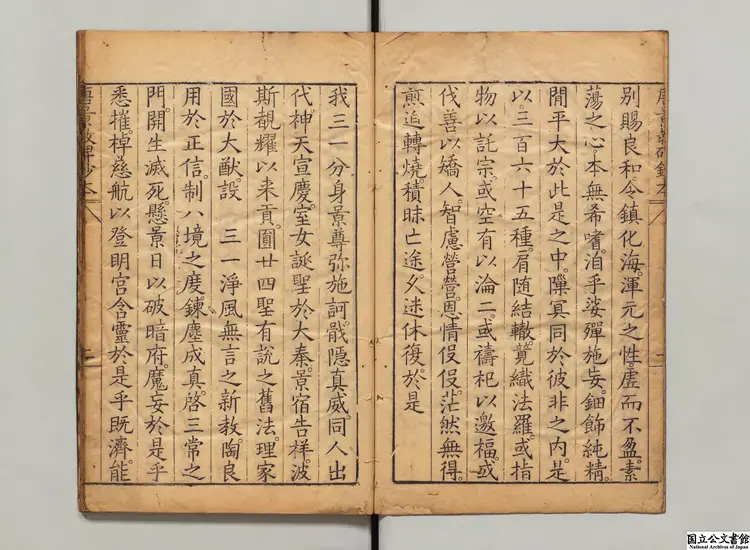 別賜良和。令鎮化海。渾元之性。虛而不盈。素
蕩之心。本無希嗜。洎乎娑殫施妄。鈿飾純精。
閒平大於此是之中。隟冥同於彼非之內。是
以三百六十五種。肩随結轍。競織法羅。或指
物以託宗。或空有以淪二。或禱祀以邀福。或
伐善以矯人。智慮營營。恩情伇伇。茫然無得。
煎迫轉燒。積昧亡途。久迷休復。於是
我三一分身景尊弥施訶戢隱真威。同人出
代神天宣慶。室女誕聖於大秦。景宿告祥。波
斯覩耀以来貢。圓廿四聖有說之舊法。理家
國於大猷。設　三一淨風無言之新教。陶良
用於正信。制八境之度。鍊塵成真。啓三常之
門。開生滅死。懸景日以破暗府。魔妄於是乎
悉摧。棹慈航以登明宮。含靈於是乎既濟。能
国立公文書館
National Archives of Japan